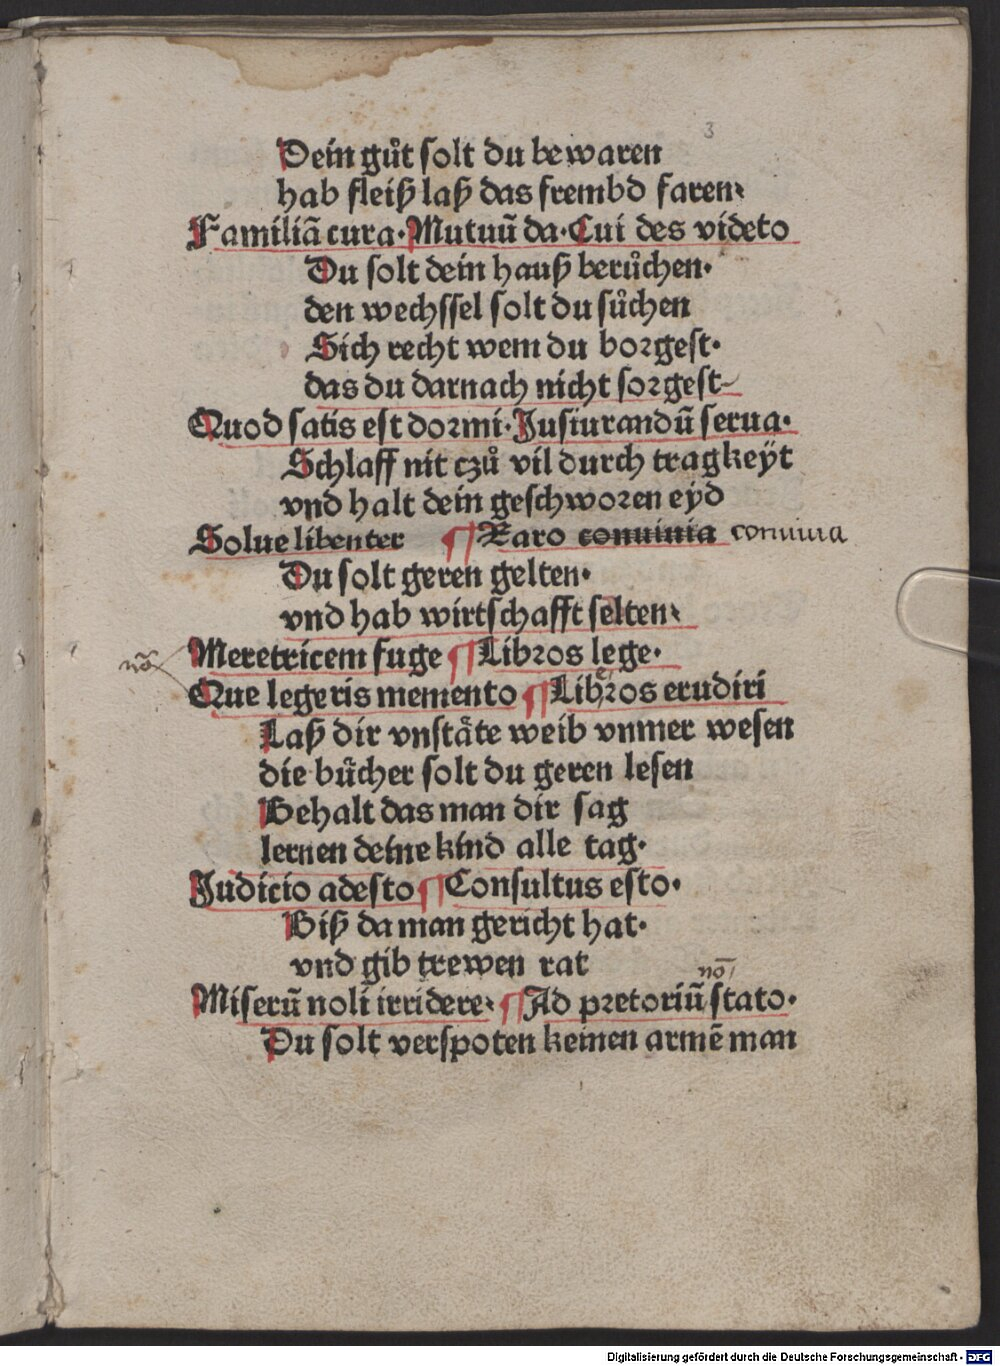 3
Dein gůt solt du bewaren
hab fleiß laß das frembd faren
Familiā cura· Mutuū da· Cui des videto
Du solt dein hauß berůchen·
den wechssel solt du sůchen
Sich recht wem du borgest·
das du darnach nicht sorgest
Quod satis est dormi· Jusiurandū serua·
Schlaff nit czů vil durch tragkeÿt
vnd halt dein geschworen eyd
Solue libenter ¶ Raro conuinia conuiuia
Du solt geren gelten·
vnd hab wirtschafft selten
Meretricem fuge ¶ Libros lege·
nō Que legeris memento ¶ Libros erudiri
Laß dir vnstäte weib vnmer wesen
die bücher solt du geren lesen
Behalt das man dir sag
lernen deine kind alle tag·
Judicio adesto ¶ Consultus esto·
Biß da man gericht hat·
vnd gib trewen rat
nō
Miserū noli irridere ¶ Ad pretoriū stato·
Du solt verspoten keinen armē man
Digitalisierung gefördert durch die Deutsche Forschungsgemeinschaft - DFG